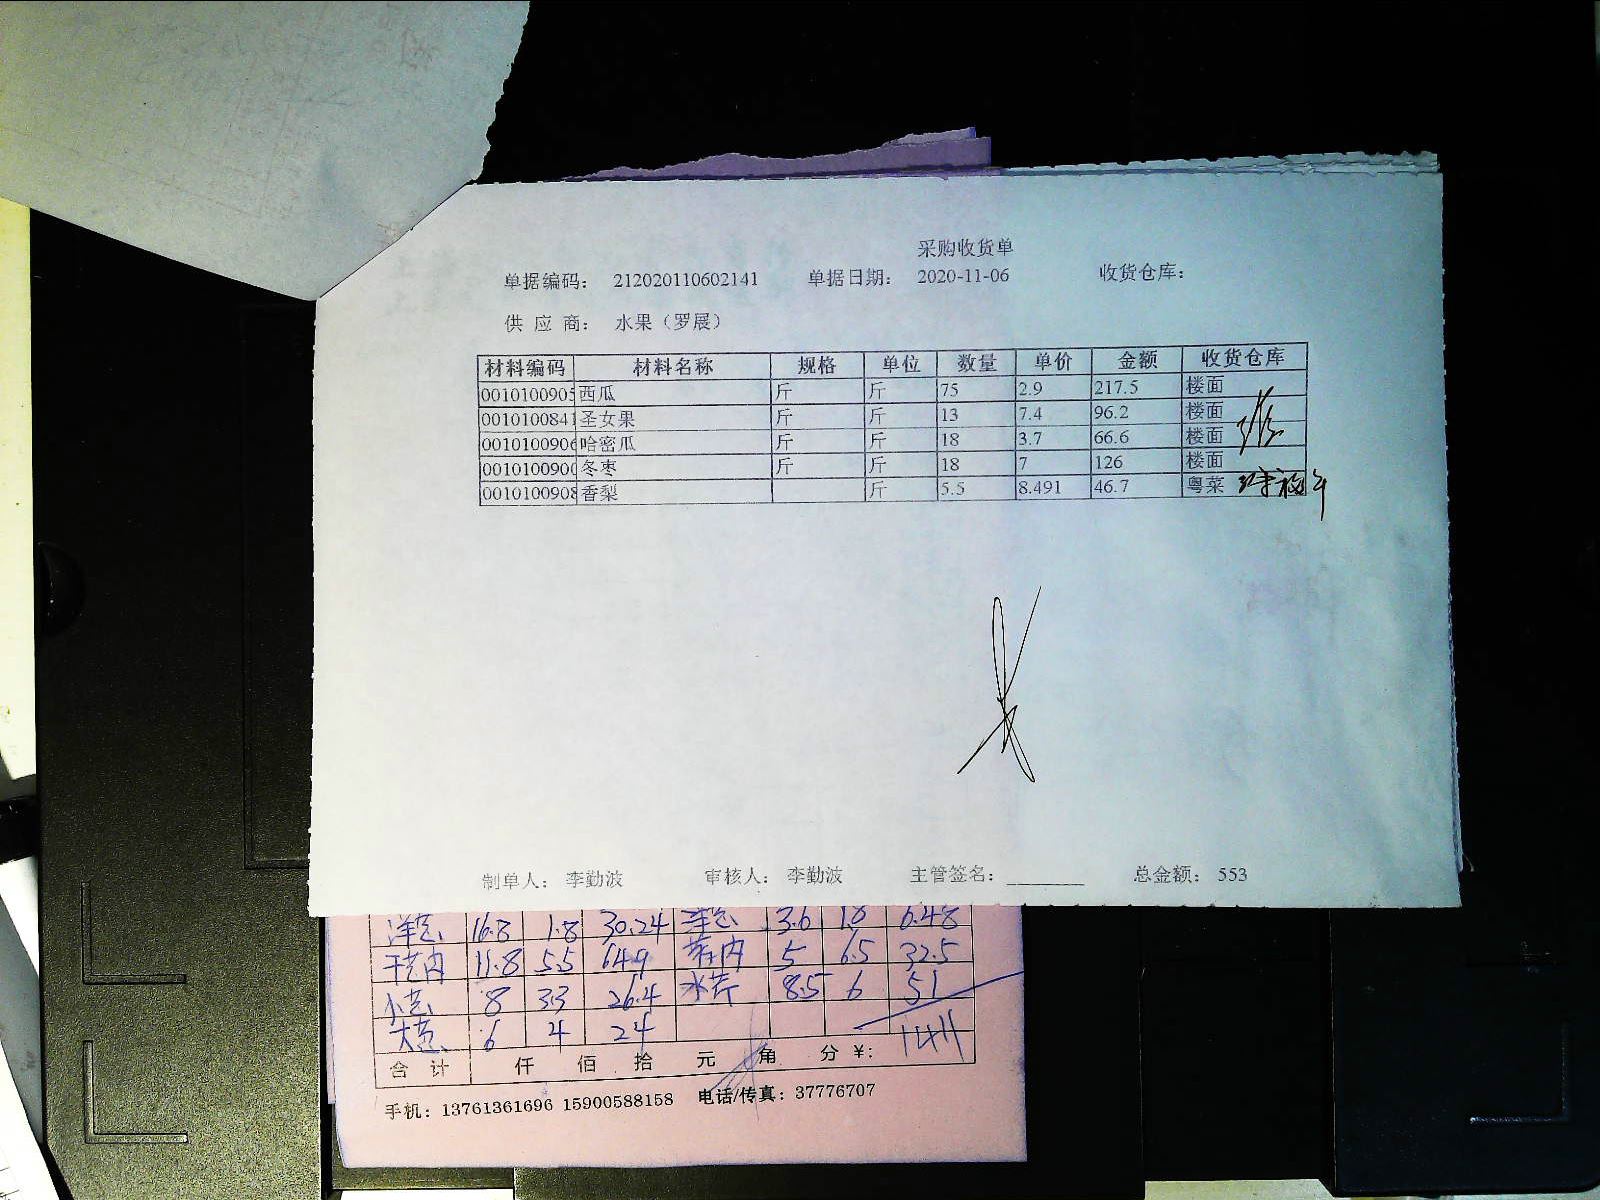 采购收货单
单据编码： 212020110602141 单据日期： 2020-11-06 收货仓库：
供 应 商： 水果（罗展）
材料编码 材料名称 规格 单位 数量 单价 金额 收货仓库
0010100905 西瓜 斤 斤 75 2.9 217.5 楼面
0010100841 圣女果 斤 斤 13 7.4 96.2 楼面
0010100906 哈密瓜 斤 斤 18 3.7 66.6 楼面
0010100900 冬枣 斤 斤 18 7 126 楼面
0010100908 香梨 斤 5.5 8.491 46.7 粤菜
制单人： 李勤波 审核人： 李勤波 主管签名：________ 总金额： 553
洋葱 16.8 1.8 30.24 洋葱 3.6 1.8 6.48
11.8 5.5 64.9 5 6.5 32.5
小葱 8 3.3 26.4 水芹 8.5 6 51
大葱 6 4 24
合 计 仟 佰 拾 元 角 分 ¥：
手机：13761361696 15900588158 电话/传真：37776707